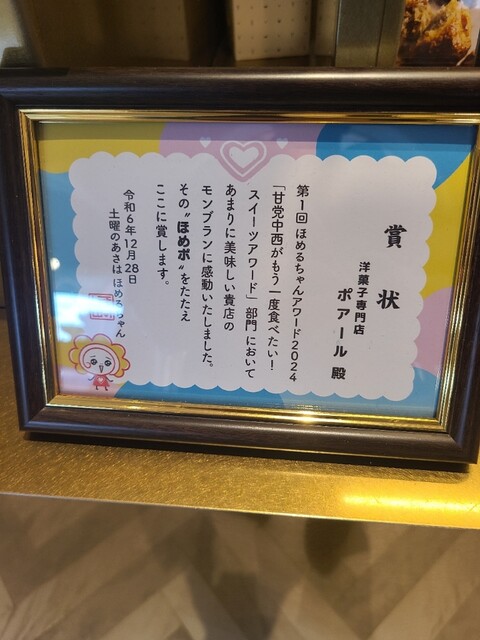 賞状
洋菓子専門店
ポアール 殿
第1回 ほめるちゃんアワード2024
「甘党中西がもう一度食べたい！
スイーツアワード」部門において
あまりに美味しい貴店の
モンブランに感動いたしました。
その〝ほめポ〟をたたえ
ここに賞します。
令和6年12月28日
土曜のあさは ほめるちゃん